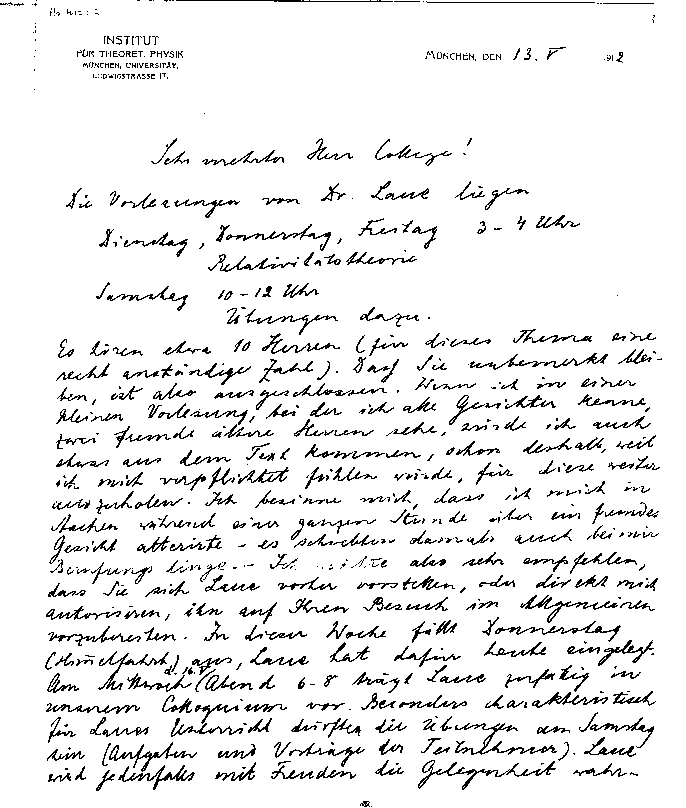 INSTITUT
FÜR THEORET. PHYSIK
MÜNCHEN, UNIVERSITÄT,
LUDWIGSTRASSE 17.
MÜNCHEN, DEN 13. V 1912
Sehr verehrter Herr College!
Die Vorlesungen von Dr. Laue liegen
Dienstag, Donnerstag, Freitag 3-4 Uhr
Relativitätstheorie
Samstag 10-12 Uhr
Übungen dazu.
Es hören etwa 10 Herren (für dieses Thema eine
recht anständige Zahl). Dass Sie unbemerkt blei-
ben, ist also ausgeschlossen. Wenn ich in einer
kleinen Vorlesung, bei der ich alle Gesichter kenne,
zwei fremde ältere Herren sehe, würde ich auch
etwas aus dem Text kommen, schon deshalb, weil
ich mich verpflichtet fühlen würde, für diese weiter
auszuholen. Ich besinne mich, dass ich mich in
Aachen während einer ganzen Stunde über ein fremdes
Gesicht alterirte - es schwebten damals auch bei mir
Berufungs dinge. - Ich möchte also sehr empfehlen,
dass Sie sich Laue vorher vorstellen, oder direkt mich
autorisiren, ihn auf Ihren Besuch im Allgemeinen
vorzubereiten. In dieser Woche fällt Donnerstag
(Himmelfahrt) aus, Laue hat dafür heute eingelegt.
Am Mittwoch (Abend 6-8 trägt Laue zufällig in
unserem Colloquium vor. Besonders charakteristisch
für Laues Unterricht dürften die Übungen am Samstag
sein (Aufgaben und Vorträge der Teilnehmer). Laue
wird jedenfalls mit Freuden die Gelegenheit wahr-